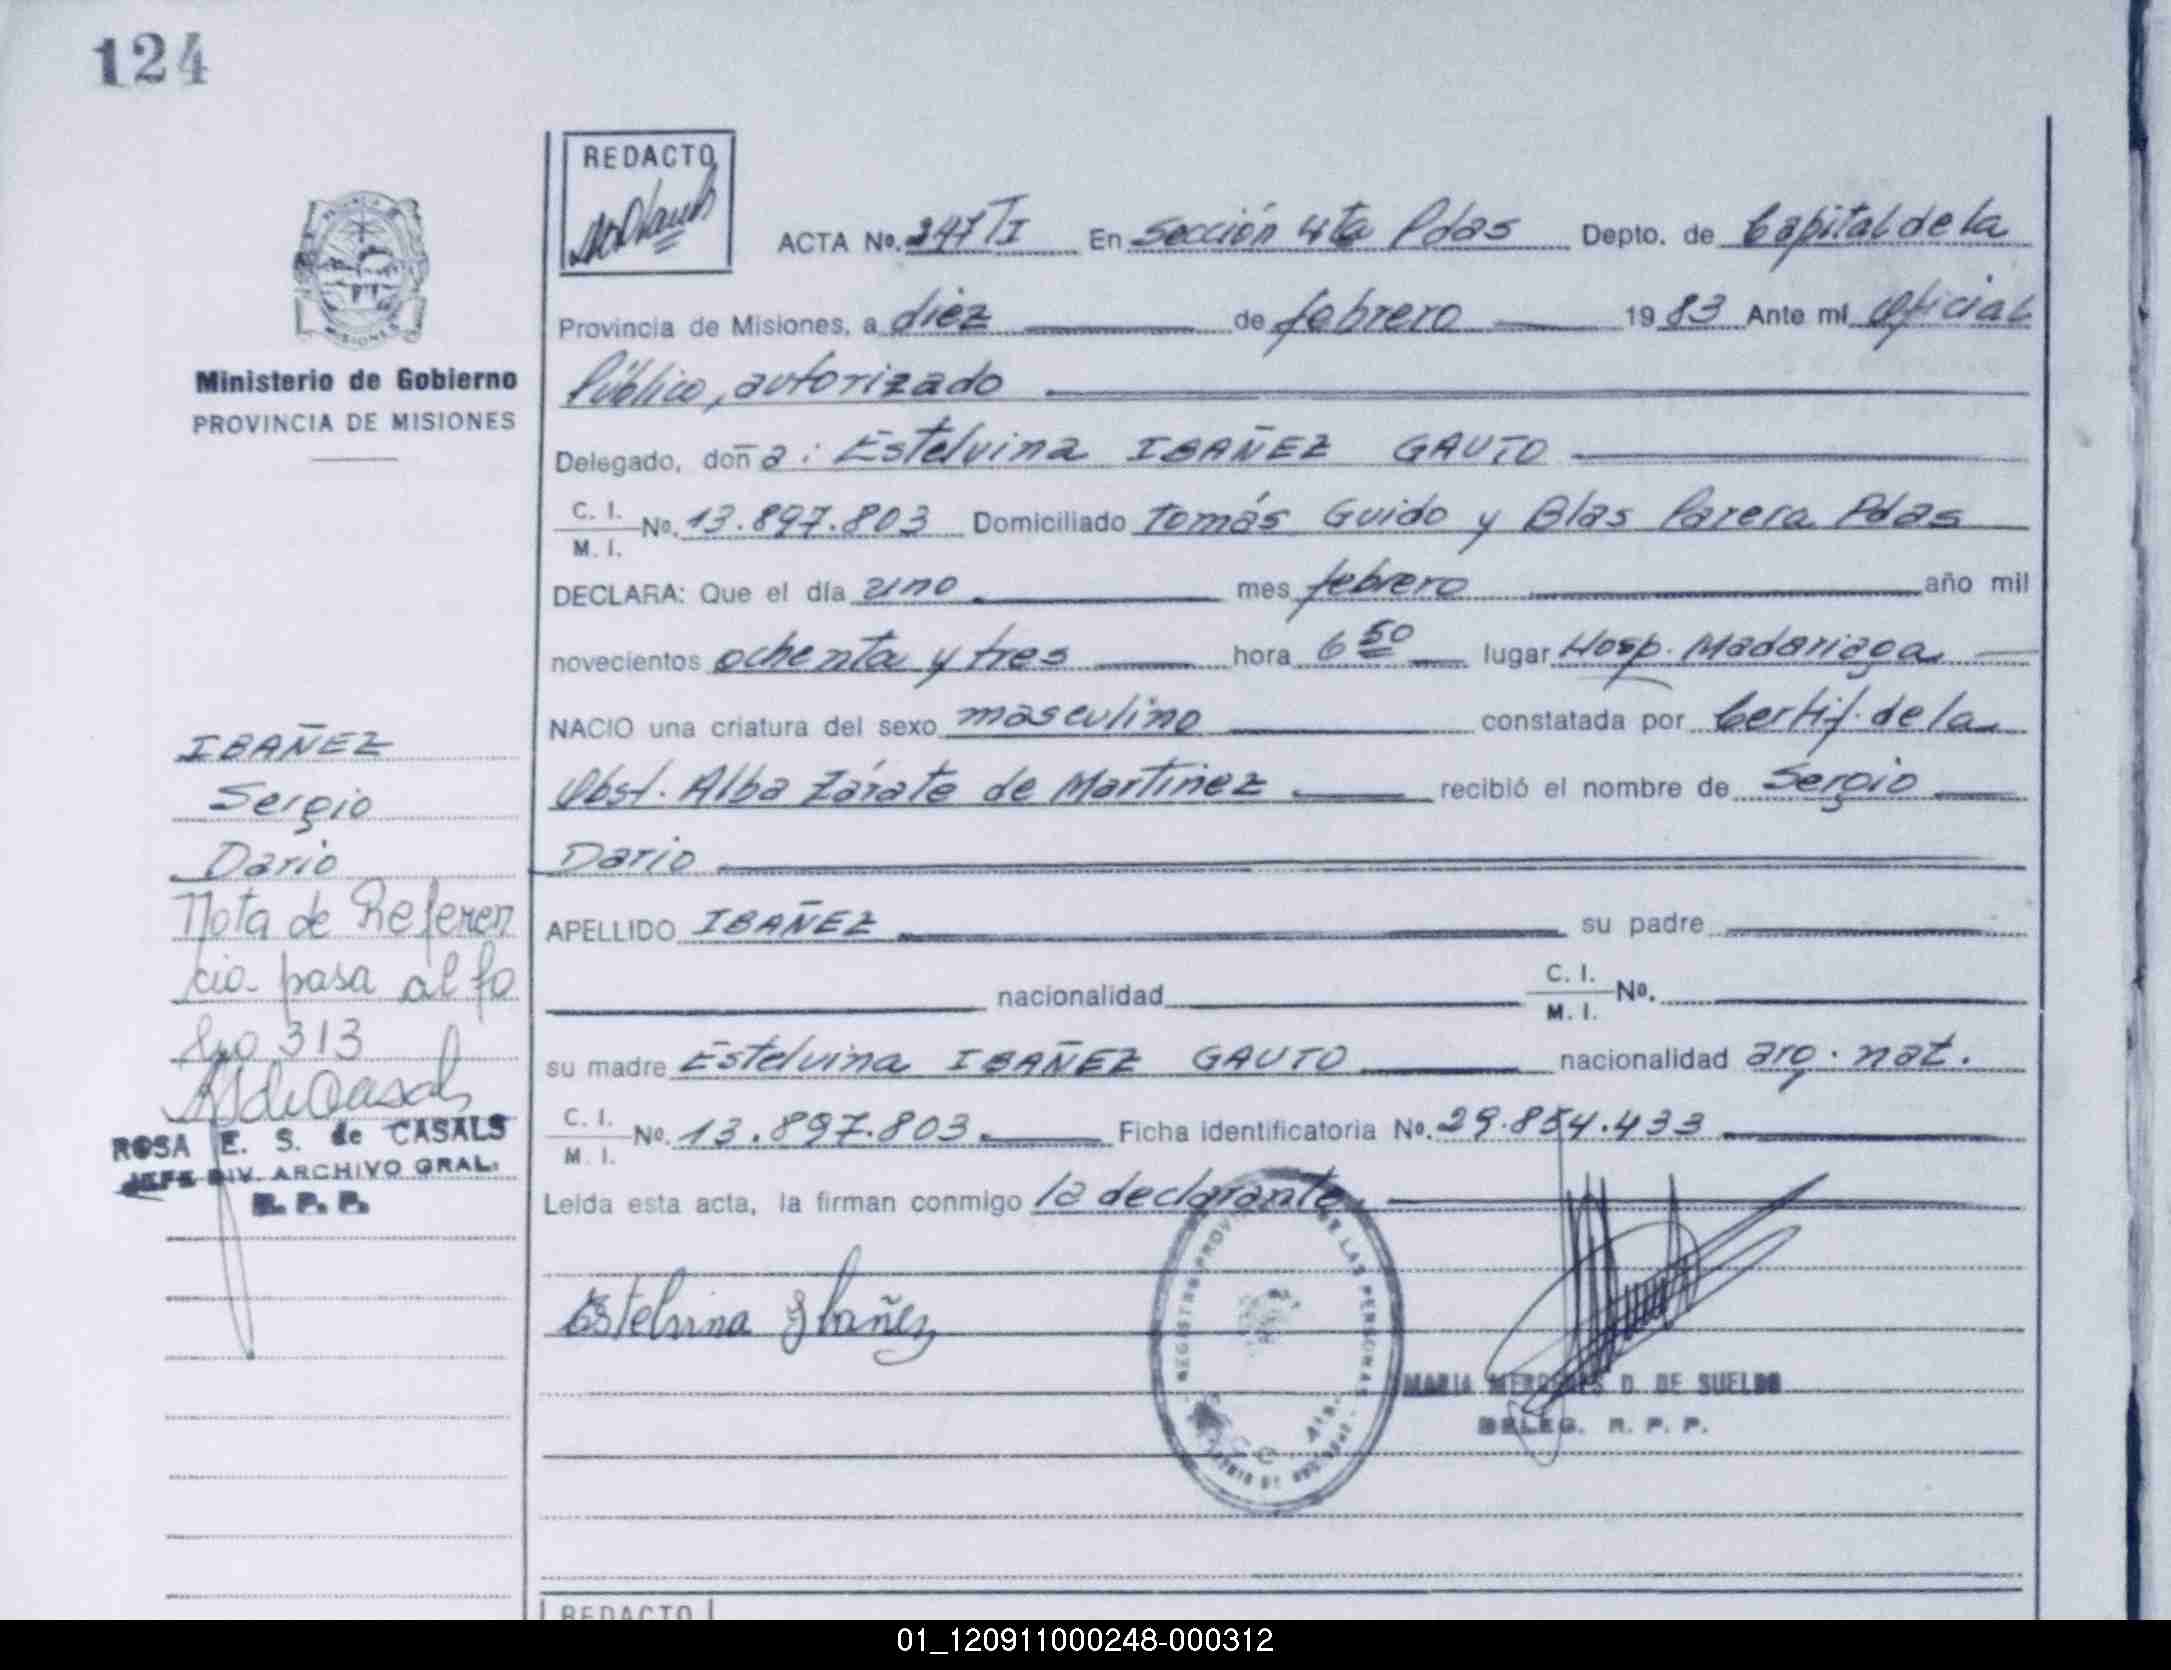 124
REDACTO
ACTA No. 247 TI En Sección 4ta Pdas Depto. de Capital de la
Provincia de Misiones, a diez de febrero 1983 Ante mí Oficial
Ministerio de Gobierno
PROVINCIA DE MISIONES
Público, autorizado
Delegado, doña: Estelvina IBAÑEZ GAUTO
C. I.
M. I. No. 13.897.803 Domiciliado Tomás Guido y Blas Parera Pdas
DECLARA: Que el día uno mes febrero año mil
novecientos ochenta y tres hora 6 50 lugar Hosp. Madariaga
NACIO una criatura del sexo masculino constatada por Certif. de la
Obst. Alba Zárate de Martinez recibió el nombre de Sergio
Dario
APELLIDO IBAÑEZ su padre
nacionalidad C. I.
M. I. No.
su madre Estelvina IBAÑEZ GAUTO nacionalidad arg. nat.
C. I.
M. I. No. 13.897.803. Ficha identificatoria No. 29.854.433
Leída esta acta, la firman conmigo la declarante.
IBAÑEZ
Sergio
Dario
Nota de Referen
cia pasa al fo
lio 313
ROSA E. S. de CASALS
JEFE DIV. ARCHIVO GRAL.
R. P. P.
Estelvina Ibañez
DE LAS PERSONAS
MARIA MERCEDES D. DE SUELDO
DELEG. R. P. P.
REDACTO
01_120911000248-000312